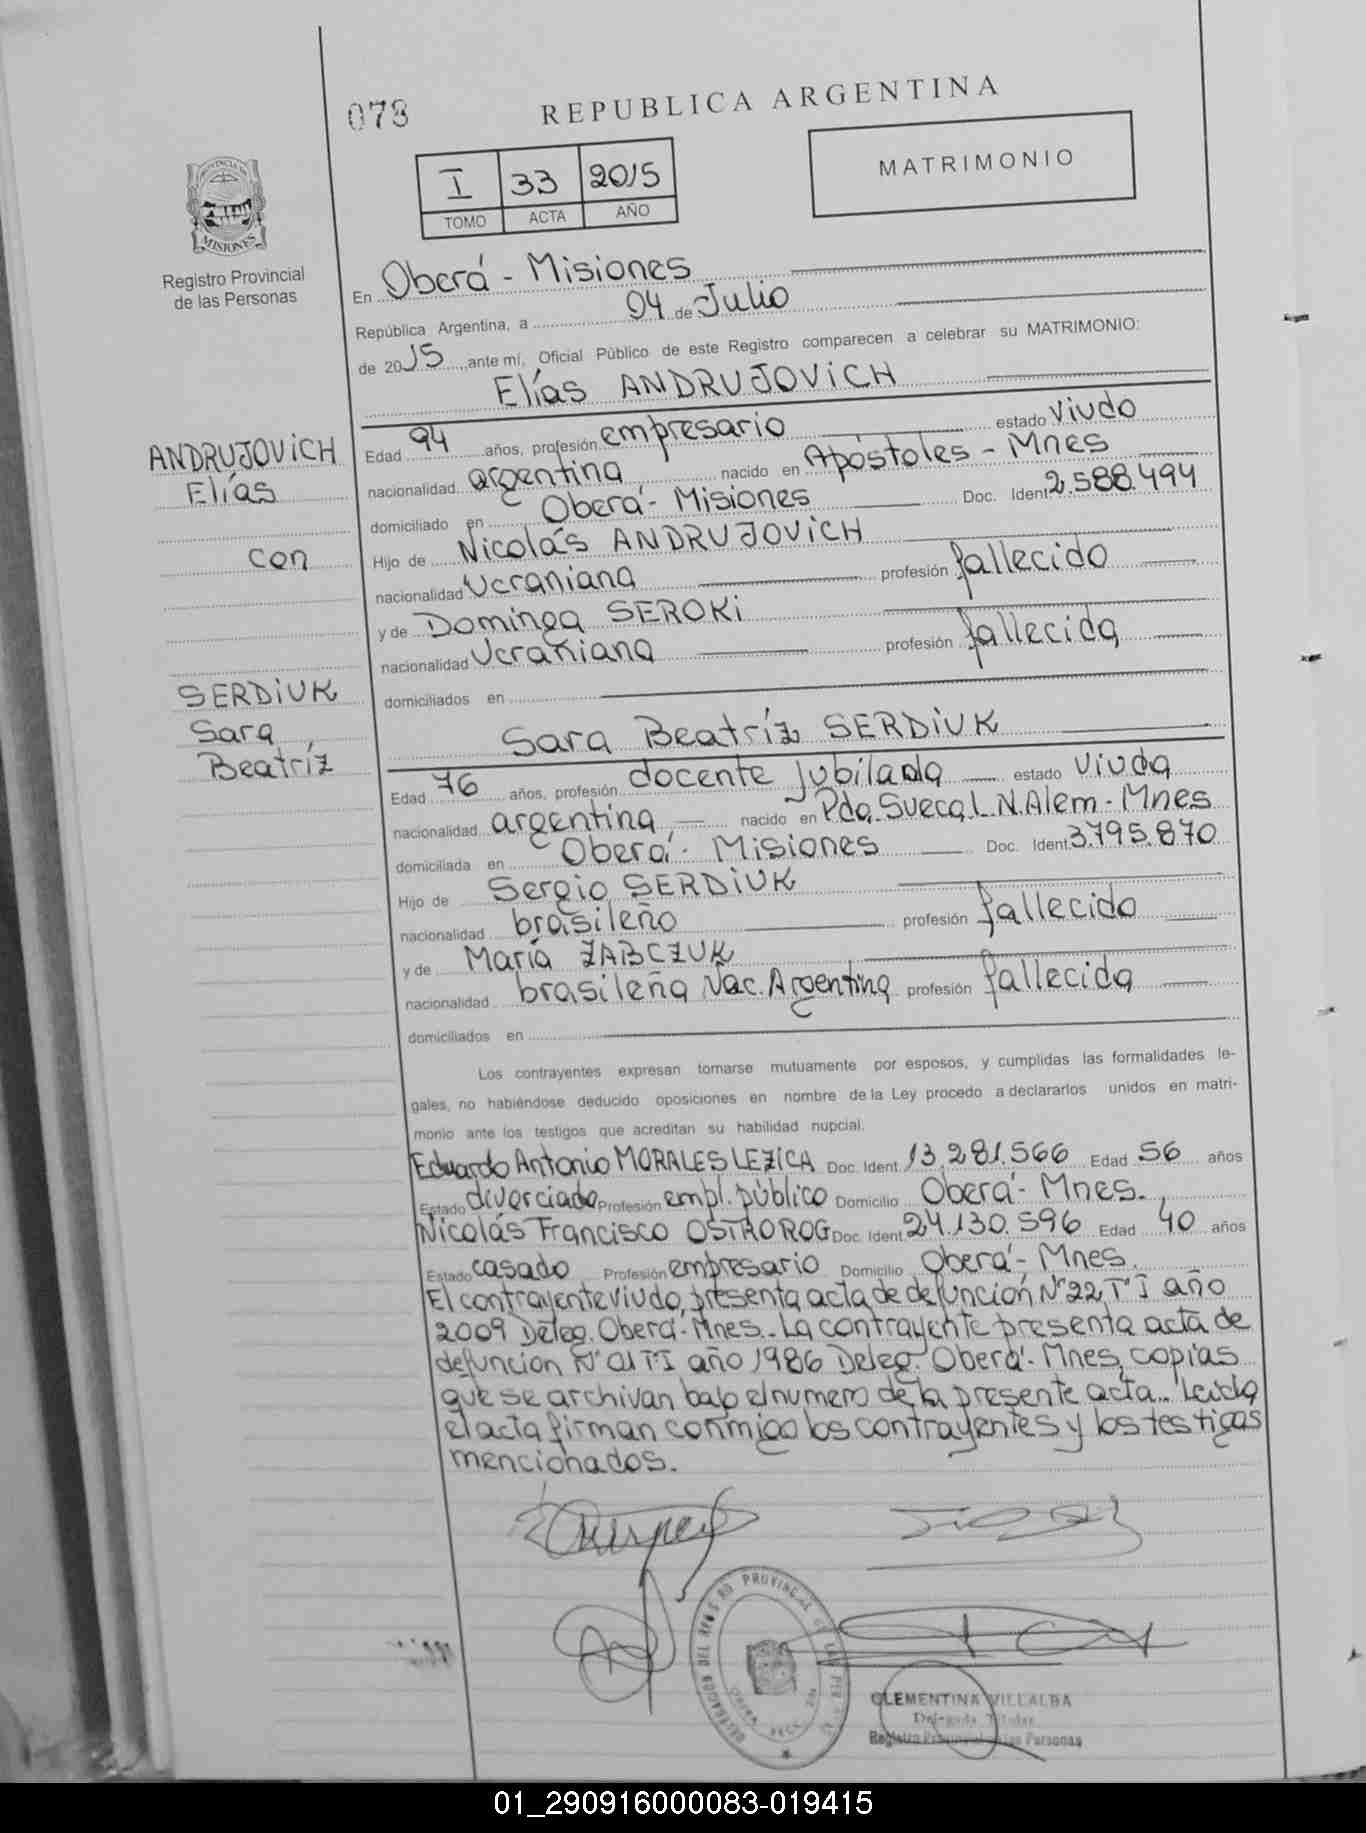 073
REPUBLICA ARGENTINA
I 33 2015
TOMO ACTA AÑO
MATRIMONIO
MISIONES
Registro Provincial
de las Personas
En Oberá - Misiones
República Argentina, a 04 de Julio
de 2015, ante mí, Oficial Público de este Registro comparecen a celebrar su MATRIMONIO:
Elías ANDRUJOVICH
ANDRUJOVICH
Elías
con
SERDIUK
Sara
Beatríz
Edad 94 años, profesión empresario estado viudo
nacionalidad argentina nacido en Apóstoles - Mnes
domiciliado en Oberá - Misiones Doc. Ident 2.588.494
Hijo de Nicolás ANDRUJOVICH
nacionalidad Ucraniana profesión fallecido
y de Dominga SEROKI
nacionalidad Ucraniana profesión fallecida
domiciliados en
Sara Beatríz SERDIUK
Edad 76 años, profesión docente jubilada estado viuda
nacionalidad argentina nacido en Pda. Sueca L.N.Alem - Mnes
domiciliada en Oberá - Misiones Doc. Ident 3.795.870
Hijo de Sergio SERDIUK
nacionalidad brasileño profesión fallecido
y de María ZABCZUK
nacionalidad brasileña Nac. Argentina profesión fallecida
domiciliados en
Los contrayentes expresan tomarse mutuamente por esposos, y cumplidas las formalidades le-
gales, no habiéndose deducido oposiciones en nombre de la Ley procedo a declararlos unidos en matri-
monio ante los testigos que acreditan su habilidad nupcial.
Eduardo Antonio MORALES LEZICA Doc. Ident. 13.281.566 Edad 56 años
Estado divorciado Profesión empl. público Domicilio Oberá - Mnes.
Nicolás Francisco OSTROROG Doc. Ident 24.130.596 Edad 40 años
Estado casado Profesión empresario Domicilio Oberá - Mnes.
El contrayente viudo, presenta acta de defunción N° 22 T° I año
2009 Deleg. Oberá - Mnes.- La contrayente presenta acta de
defunción N° 01 T° I año 1986 Deleg. Oberá - Mnes, copias
que se archivan bajo el numero de la presente acta.- Leída
el acta firman conmigo los contrayentes y los testigos
mencionados.
CLEMENTINA VILLALBA
Delegada Titular
Registro Provincial de las Personas
01_290916000083-019415